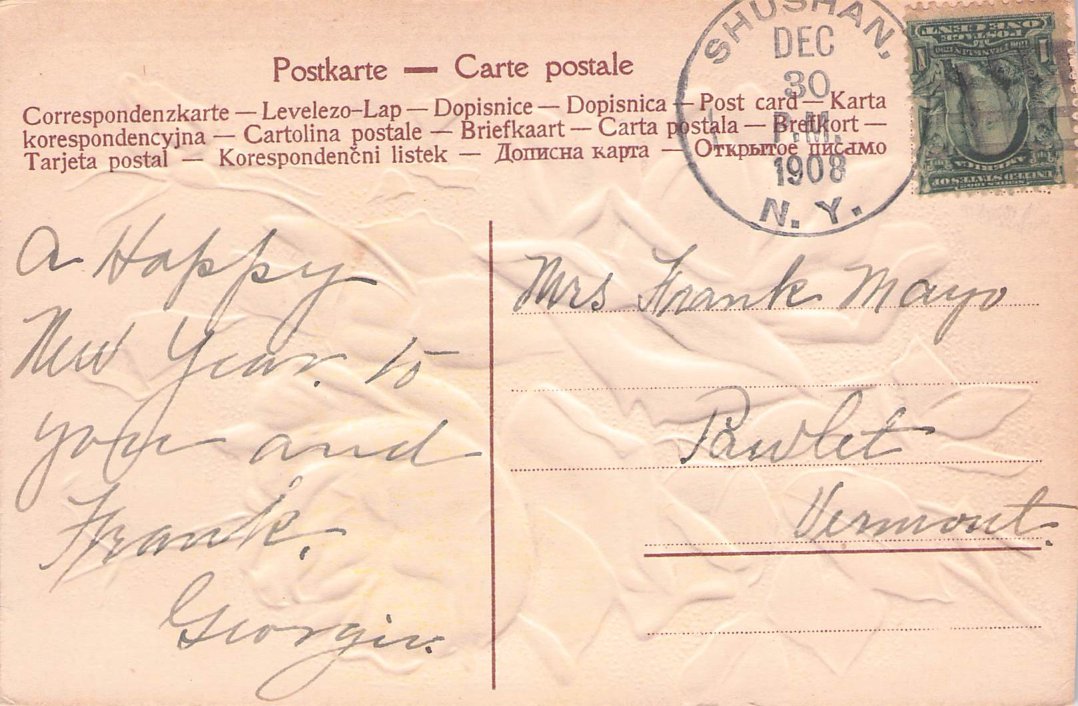 Postkarte — Carte postale
Correspondenzkarte — Levelezo-Lap — Dopisnice — Dopisnica — Post card — Karta
korespondencyjna — Cartolina postale — Briefkaart — Carta postala — Brefkort —
Tarjeta postal — Korespondenčni listek — Дописна карта — Открытое письмо
SHUSHAN,
DEC
30
P.M.
1908
N. Y.
UNITED STATES OF
AMERICA
POSTAGE
ONE CENT
1 1
A Happy
New Year. to
you and
Frank.
Georgia.
Mrs Frank Mayo
Pawlet
Vermont.